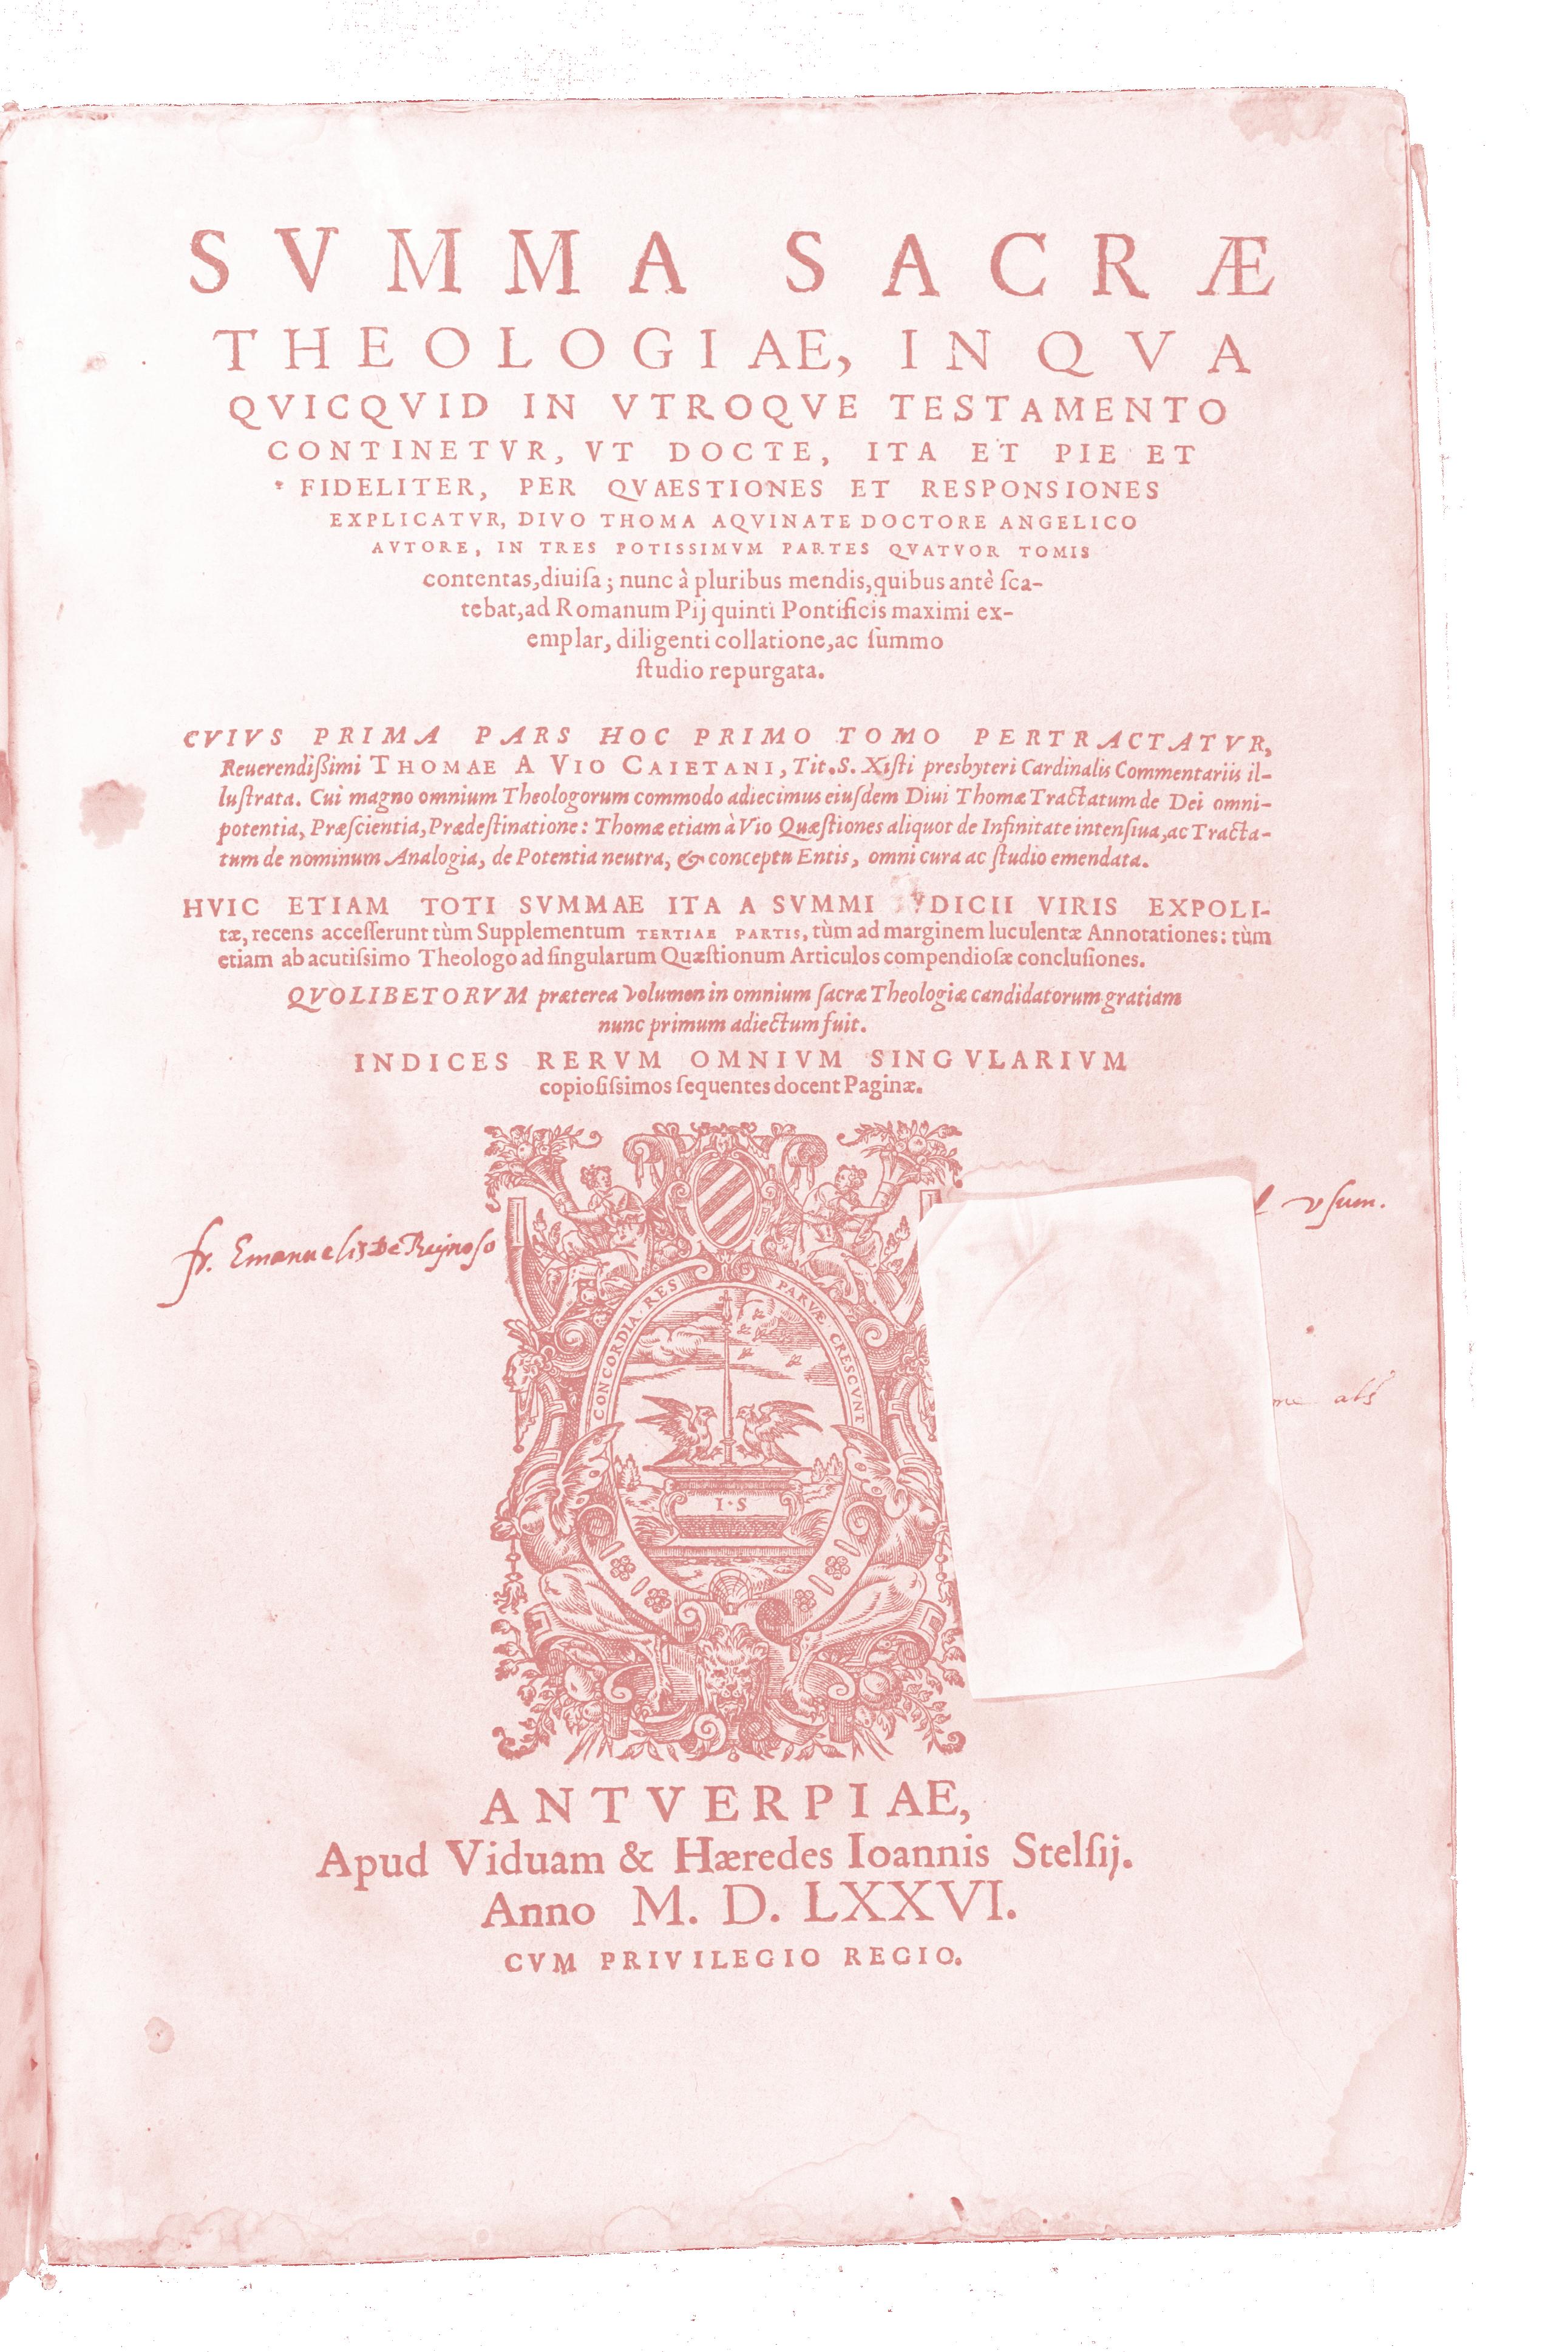 SVMMA SACRÆ
THEOLOGIAE, IN QVA
QVICQVID IN VTROQVE TESTAMENTO
CONTINETVR, VT DOCTE, ITA ET PIE ET
FIDELITER, PER QVAESTIONES ET RESPONSIONES
EXPLICATVR, DIVO THOMA AQVINATE DOCTORE ANGELICO
AVTORE, IN TRES POTISSIMVM PARTES QVATVOR TOMIS
contentas, diuiſa; nunc à pluribus mendis, quibus antè ſca-
tebat, ad Romanum Pij quinti Pontificis maximi ex-
emplar, diligenti collatione, ac ſummo
ſtudio repurgata.
CVIVS PRIMA PARS HOC PRIMO TOMO PERTRACTATVR,
Reuerendißimi THOMAE A VIO CAIETANI, Tit. S. Xiſti presbyteri Cardinalis Commentariis il-
luſtrata. Cui magno omnium Theologorum commodo adiecimus eiuſdem Diui Thomæ Tractatum de Dei omni-
potentia, Præſcientia, Prædeſtinatione: Thomæ etiam à Vio Quæſtiones aliquot de Infinitate intenſiua, ac Tracta-
tum de nominum Analogia, de Potentia neutra, & conceptu Entis, omni cura ac ſtudio emendata.
HVIC ETIAM TOTI SVMMAE ITA A SVMMI VDICII VIRIS EXPOLI-
tæ, recens acceſſerunt tùm Supplementum TERTIAE PARTIS, tùm ad marginem luculentæ Annotationes: tùm
etiam ab acutiſsimo Theologo ad ſingularum Quæſtionum Articulos compendioſæ concluſiones.
QVOLIBETORVM præterea volumen in omnium ſacræ Theologiæ candidatorum gratiam
nunc primum adiectum fuit.
INDICES RERVM OMNIVM SINGVLARIVM
copioſiſsimos ſequentes docent Paginæ.
fr. Emanuelis De Reynoſo
vſum.
CONCORDIA RES PARVÆ CRESCVNT
I·S
ANTVERPIAE,
Apud Viduam & Hæredes Ioannis Stelſij.
Anno M. D. LXXVI.
CVM PRIVILEGIO REGIO.